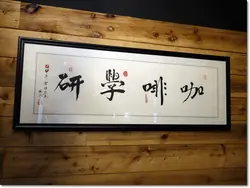 咖啡學研